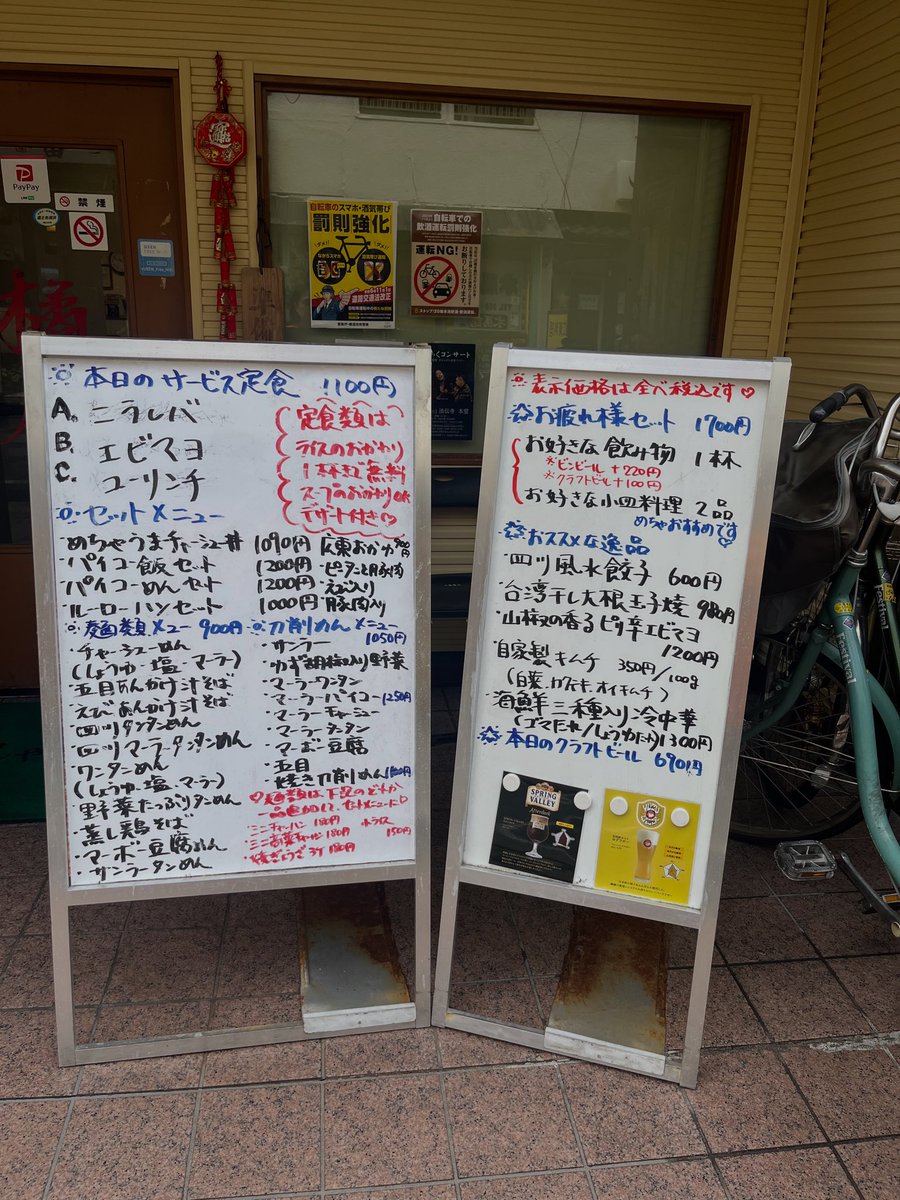 PayPay
禁煙
自転車のスマホ・酒気帯び
罰則強化
ながらスマホ
道路交通法改正
自転車での
飲酒運転罰則強化
運転NG!
お断りしております。
コンサート
本日のサービス定食 1100円
A. ニラレバ
B. エビマヨ
C. ユーリンチ
定食類は
ライスのおかわり
1杯まで無料
スープのおかわりOK
デザート付き♡
セットメニュー
・めちゃうまチャーシュー丼 1090円
・パイコー飯セット 1200円
・パイコーめんセット 1200円
・ルーローハンセット 1000円
広東おかゆ
・ピータンと豚肉
・えび入り
・豚肉入り
麺類メニュー 900円
・チャーシューめん
(しょうゆ・塩・マーラー)
・五目あんかけ汁そば
・えびあんかけ汁そば
・四川タンタンめん
・四川マーラータンタンめん
・ワンタンめん
(しょうゆ・塩・マーラー)
・野菜たっぷりタンめん
・蒸し鶏そば
・マーボー豆腐めん
・サンラータンめん
刀削めんメニュー
1050円
・サンラー
・ゆず胡椒入り野菜
・マーラーワンタン
・マーラーパイコー 1250円
・マーラーチャーシュー
・マーラータンタン
・マーボー豆腐
・五目
・焼き刀削めん
♡麺類は下記のどれか
一品追加して、セットメニューに♡
・ミニチャーハン 180円
・ミニ高菜チャーハン 180円
・焼ぎょうざ3ケ 180円
・ライス
150円
表示価格は全べ税込です♡
お疲れ様セット 1700円
お好きな飲み物 1杯
※ビンビール +220円
※クラフトビール +100円
お好きな小皿料理 2品
めちゃおすすめです♡
おススメな逸品
・四川風水餃子 600円
・台湾干し大根玉子焼 980円
・山椒の香るピリ辛エビマヨ
1200円
・自家製キムチ 350円/100g
(白菜、カクテキ、オイキムチ)
・海鮮三種入り冷中華
(ゴマだれ/しょうゆだれ) 1300円
本日のクラフトビール 690円
SPRING
VALLEY